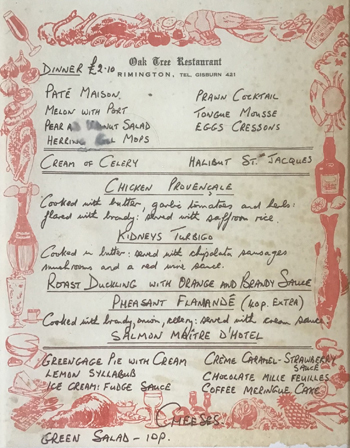 Oak Tree Restaurant
DINNER £2·10
RIMINGTON, TEL. GISBURN 421
PATÉ MAISON.
PRAWN COCKTAIL
MELON WITH PORT
TONGUE MOUSSE
PEAR SALAD
EGGS CRESSONS
HERRING MOPS
CREAM OF CELERY
HALIBUT ST. JACQUES
CHICKEN PROVENÇALE
Cooked with butter, garlic tomatoes and herbs:
flared with brandy: served with saffron rice.
KIDNEYS TURBIGO
Cooked in butter: served with chipolata sausages
mushrooms and a red wine sauce.
ROAST DUCKLING WITH ORANGE AND BRANDY SAUCE
PHEASANT FLAMANDE (40p. EXTRA)
Cooked with brandy, onion, celery: served with cream sauce
SALMON MAÎTRE D'HOTEL
GREENGAGE PIE WITH CREAM
CRÈME CARAMEL - STRAWBERRY SAUCE
LEMON SYLLABUB
CHOCOLATE MILLE FEUILLES
ICE CREAM: FUDGE SAUCE
COFFEE MERINGUE CAKE
CHEESES
GREEN SALAD - 10P.